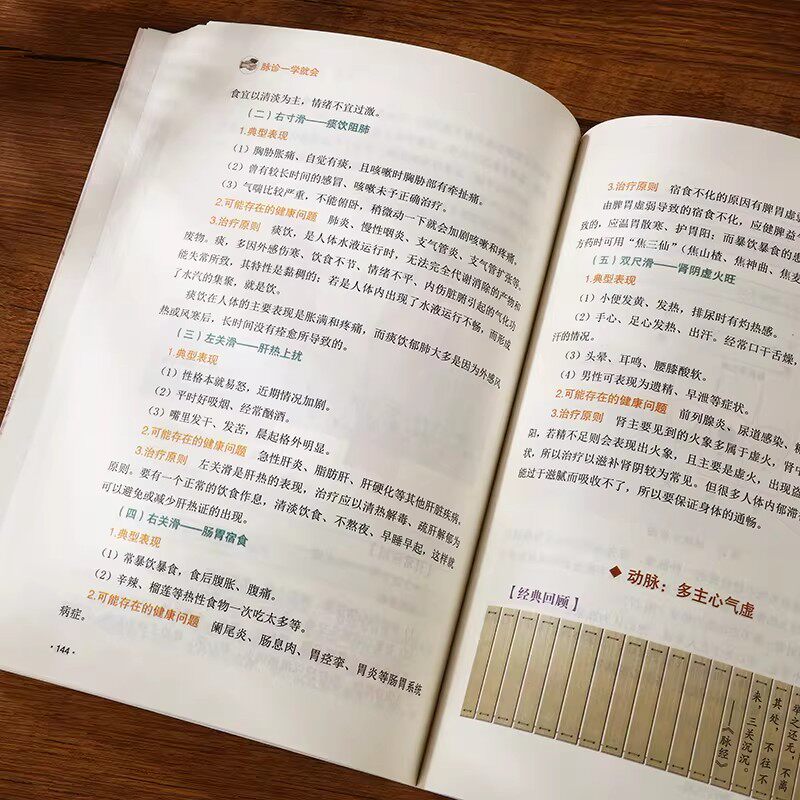 脉诊一学就会
食宜以清淡为主，情绪不宜过激。
（二）右寸滑——痰饮阻肺
1.典型表现
（1）胸胁胀痛、自觉有痰，且咳嗽时胸胁部有牵扯痛。
（2）曾有较长时间的感冒、咳嗽未予正确治疗。
（3）气喘比较严重，不能俯卧，稍微动一下就会加剧咳嗽和疼痛。
2.可能存在的健康问题 肺炎、慢性咽炎、支气管炎、支气管扩张等。
3.治疗原则 痰饮，是人体水液运行时，无法完全代谢消除的产物和
废物。痰，多因外感伤寒、饮食不节、情绪不平、内伤脏腑引起的气化功
能失常所致，其特性是黏稠的；若是人体内出现了水液运行不畅，而形成
了水汽的集聚，就是饮。
痰饮在人体的主要表现是胀满和疼痛，而痰饮郁肺大多是因为外感风
热或风寒后，长时间没有痊愈所导致的。
（三）左关滑——肝热上扰
1.典型表现
（1）性格本就易怒，近期情况加剧。
（2）平时好吸烟、经常酗酒。
（3）嘴里发干、发苦，晨起格外明显。
2.可能存在的健康问题 急性肝炎、脂肪肝、肝硬化等其他肝脏疾病。
3.治疗原则 左关滑是肝热的表现，治疗应以清热解毒、疏肝解郁为
原则。要有一个正常的饮食作息，清淡饮食、不熬夜、早睡早起，这样就
可以避免或减少肝热证的出现。
（四）右关滑——肠胃宿食
1.典型表现
（1）常暴饮暴食，食后腹胀、腹痛。
（2）辛辣、榴莲等热性食物一次吃太多等。
2.可能存在的健康问题 阑尾炎、肠息肉、胃痉挛、胃炎等肠胃系统
病症。
·144·
3.治疗原则 宿食不化的原因有脾胃虚
由脾胃虚弱导致的宿食不化，应健脾益
致的，应温胃散寒、护胃阳；而暴饮暴食的患
方药时可用“焦三仙”（焦山楂、焦神曲、焦麦
（五）双尺滑——肾阴虚火旺
1.典型表现
（1）小便发黄、发热，排尿时有灼热感。
（2）手心、足心发热、出汗。经常口干舌燥，
汗的情况。
（3）头晕、耳鸣、腰膝酸软。
（4）男性可表现为遗精、早泄等症状。
2.可能存在的健康问题 前列腺炎、尿道感染、糖
3.治疗原则 肾主要见到的火象多属于虚火，肾
阳，若精不足则会表现出火象，且主要是虚火，出现盗
状，所以治疗以滋补肾阴较为常见。但很多人体内郁滞
能过于滋腻而吸收不了，所以要保证身体的通畅。
动脉：多主心气虚
【经典回顾】
举之还无，不离
其处，不往不
来，三关沉沉。
——《脉经》